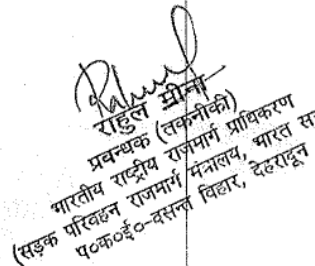 राहुल मीना
प्रबन्धक (तकनीकी)
भारतीय राष्ट्रीय राजमार्ग प्राधिकरण
(सड़क परिवहन राजमार्ग मंत्रालय, भारत सर
प०क०ई०-वसन्त विहार, देहरादून